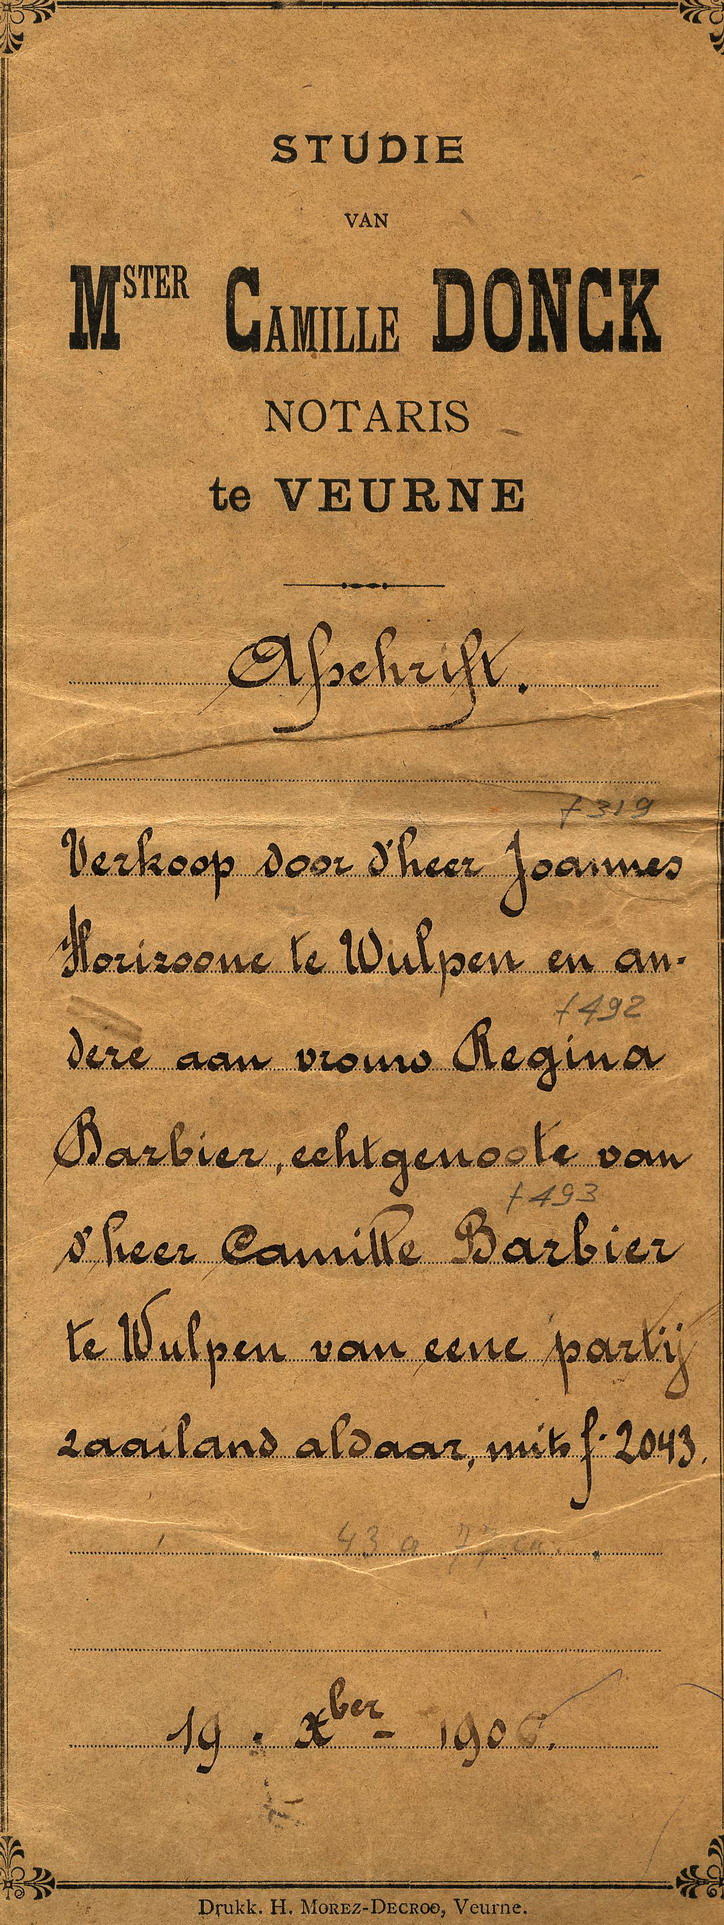 STUDIE
VAN
MSTER CAMILLE DONCK
NOTARIS
te VEURNE
Afschrift.
+ 319
Verkoop door d'heer Joannes
Florizoone te Wulpen en an-
+ 492
dere aan vrouw Regina
Barbier, echtgenoote van
+ 493
d'heer Camille Barbier
te Wulpen van eene partij
zaailand aldaar, mits f. 2043.
43 a 77 ca.
19 . Xber - 190
Drukk. H. MOREZ-DECROO, Veurne.